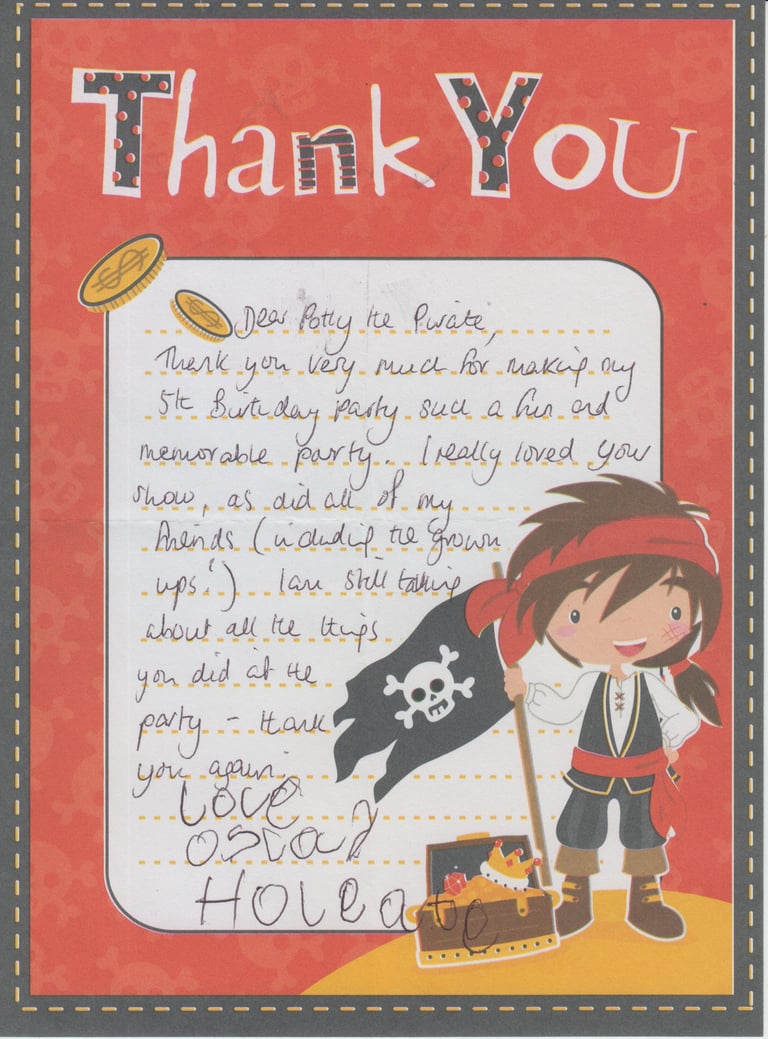 Thank You
Dear Potty the Pirate,
Thank you very much for making my
5th Birthday party such a fun and
memorable party. I really loved your
show, as did all of my
friends (including the grown
ups!) I am still talking
about all the things
you did at the
party - thank
you again.
Love
oscar
Holgate